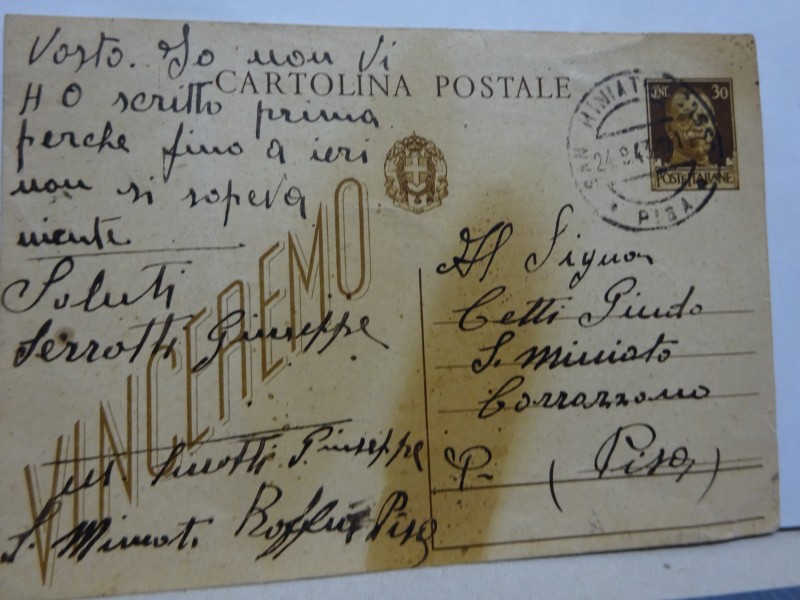 Vosto. Io non Vi
HO scritto prima
perche fino a ieri
non si sapeva
niente
Saluti
Serrotti Giuseppe
CARTOLINA POSTALE
CENT. 30
POSTE ITALIANE
SAN MINIATO
24.8.43
PISA
VINCEREMO
Al Signor
Cetti Guido
S. Miniato
Corrazzano
P. (Pisa)
Giuseppe
S. Miniato Roffia Pisa